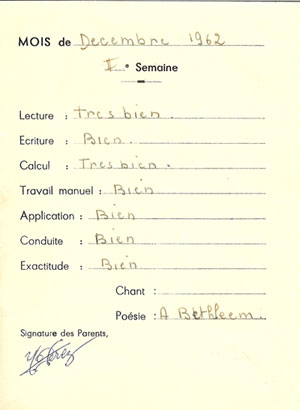 MOIS de Decembre 1962
I° Semaine
Lecture : tres bien.
Ecriture : Bien.
Calcul : Tres bien.
Travail manuel : Bien
Application : Bien
Conduite : Bien
Exactitude : Bien
Chant :
Poésie : A Bethleem.
Signature des Parents,